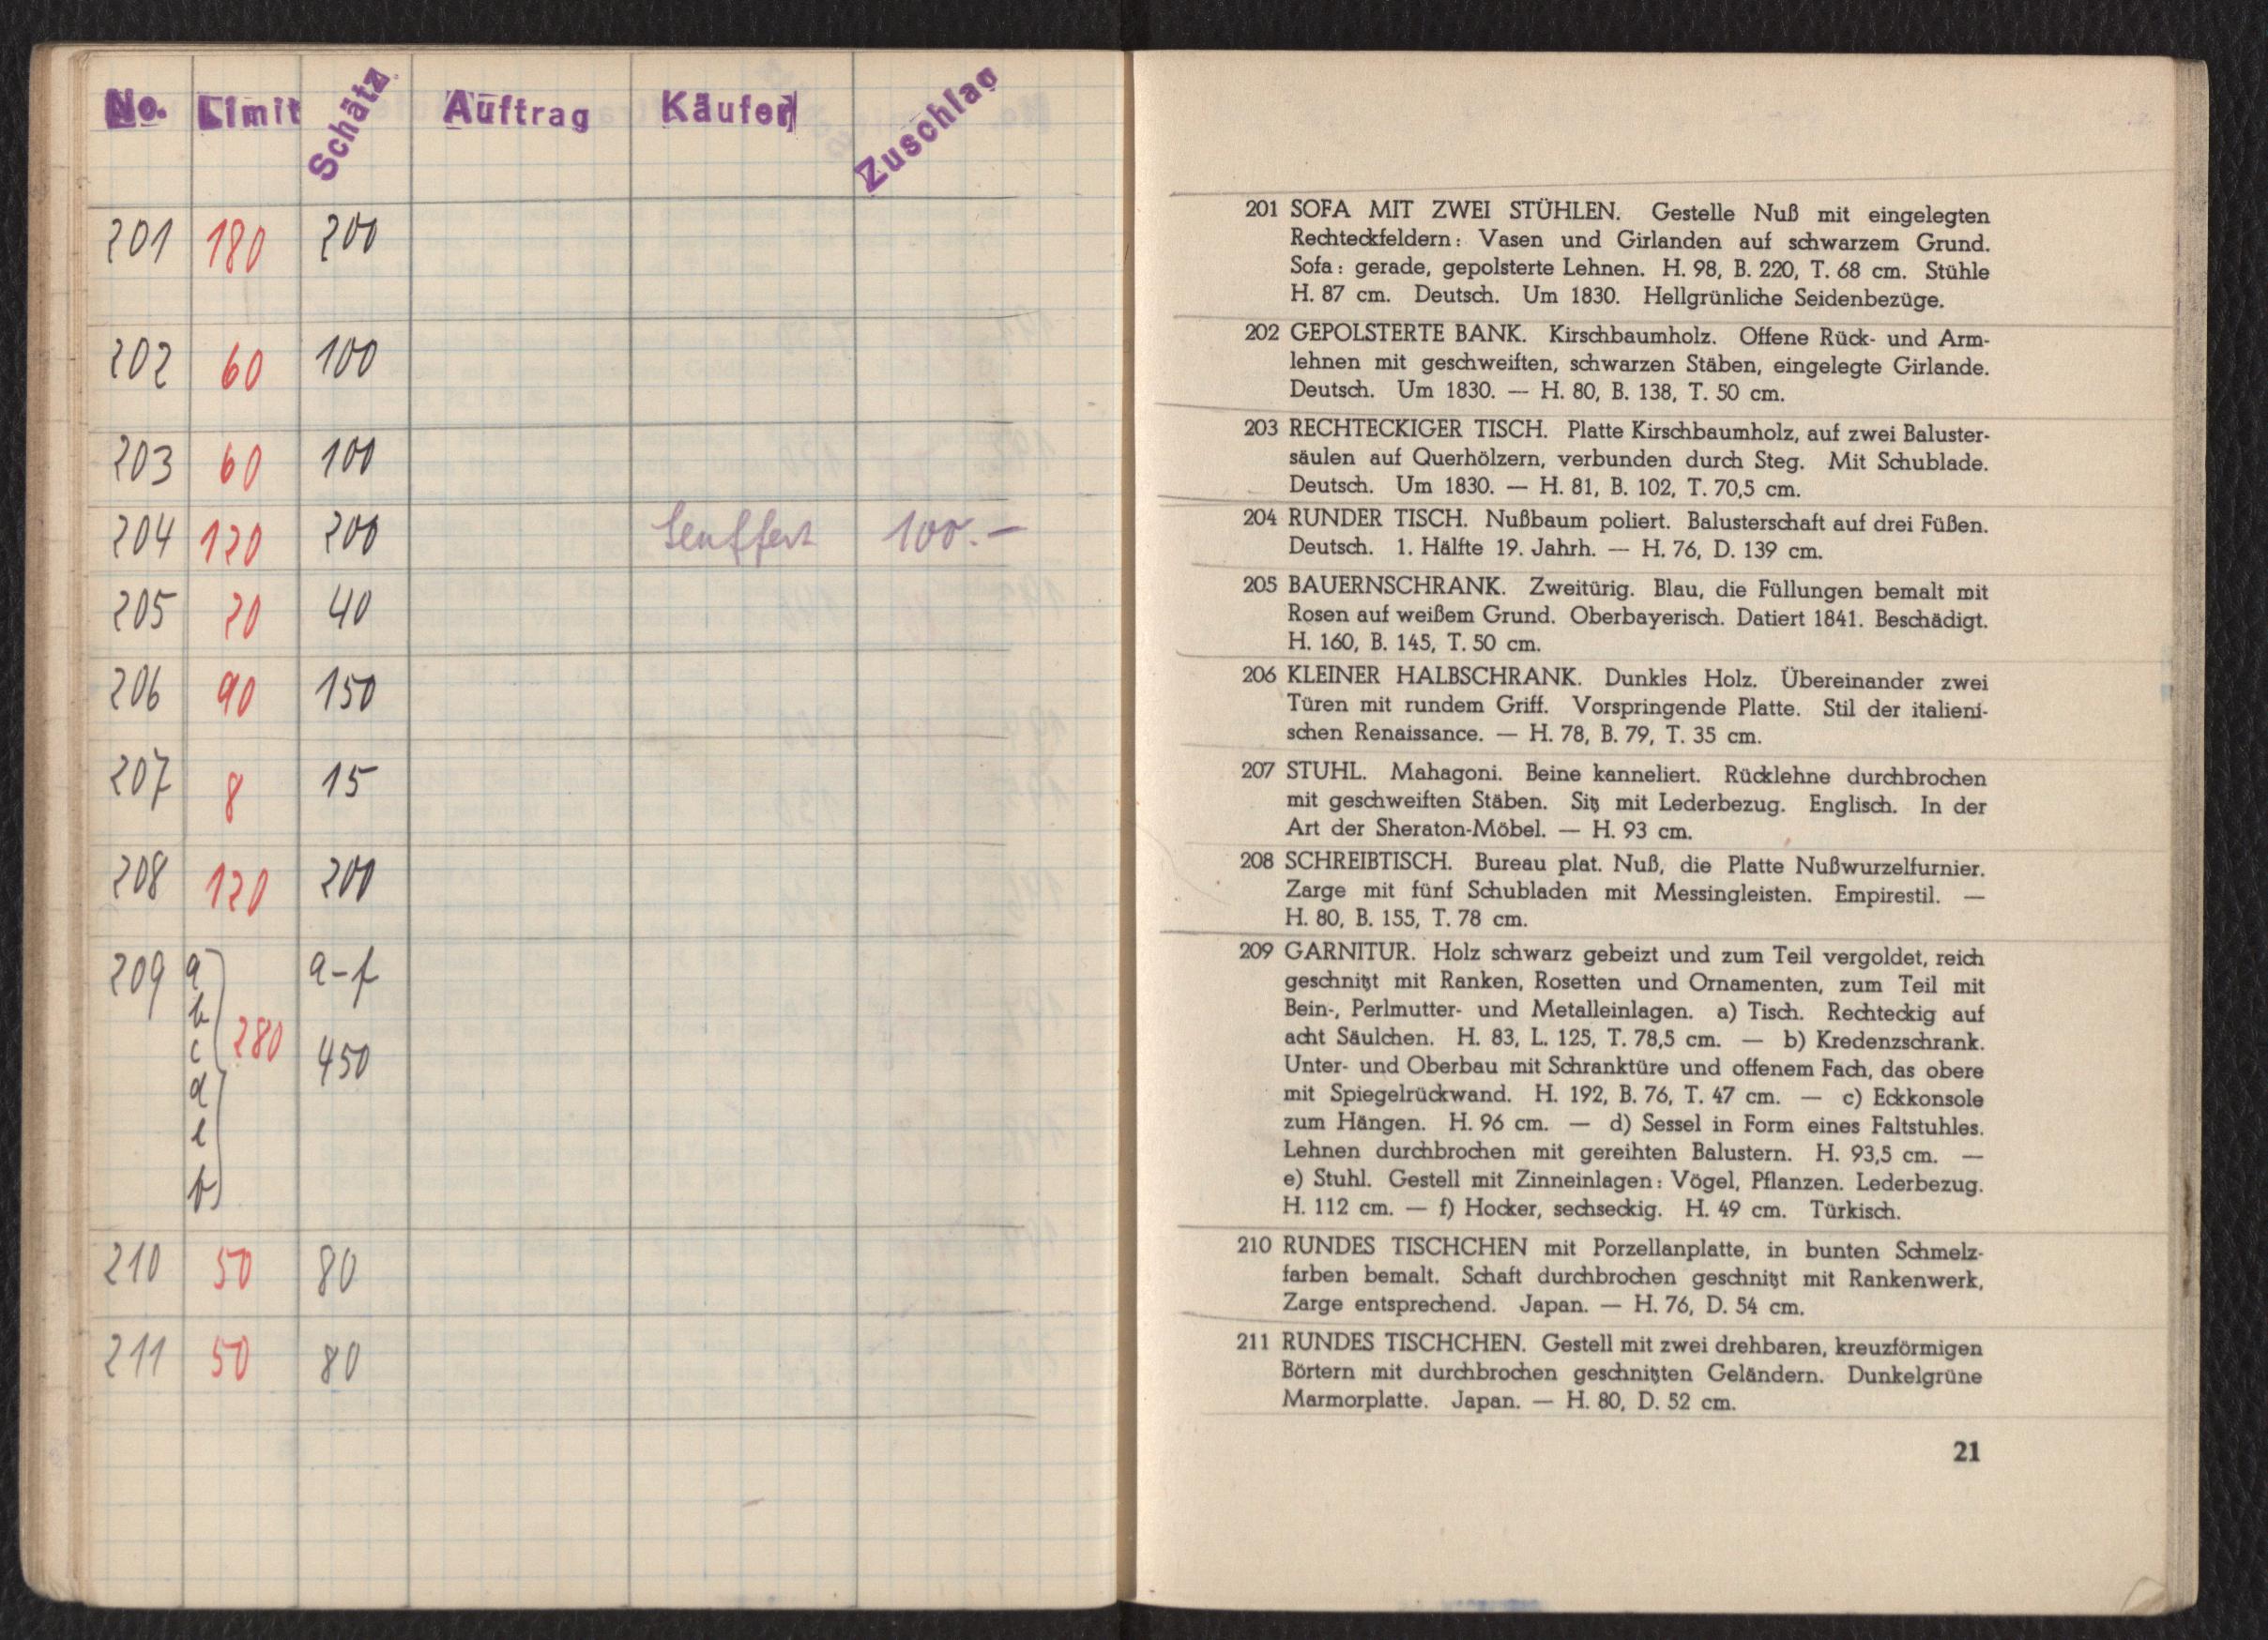 No. Limit Schätz Auftrag Käufer Zuschlag
201 180 200
202 60 100
203 60 100
204 120 200 Seuffert 100.-
205 20 40
206 90 150
207 8 15
208 120 200
209 a a-f
b
c 280 450
d
e
f
210 50 80
211 50 80
201 SOFA MIT ZWEI STÜHLEN. Gestelle Nuß mit eingelegten
Rechteckfeldern: Vasen und Girlanden auf schwarzem Grund.
Sofa: gerade, gepolsterte Lehnen. H. 98, B. 220, T. 68 cm. Stühle
H. 87 cm. Deutsch. Um 1830. Hellgrünliche Seidenbezüge.
202 GEPOLSTERTE BANK. Kirschbaumholz. Offene Rück- und Arm-
lehnen mit geschweiften, schwarzen Stäben, eingelegte Girlande.
Deutsch. Um 1830. — H. 80, B. 138, T. 50 cm.
203 RECHTECKIGER TISCH. Platte Kirschbaumholz, auf zwei Baluster-
säulen auf Querhölzern, verbunden durch Steg. Mit Schublade.
Deutsch. Um 1830. — H. 81, B. 102, T. 70,5 cm.
204 RUNDER TISCH. Nußbaum poliert. Balusterschaft auf drei Füßen.
Deutsch. 1. Hälfte 19. Jahrh. — H. 76, D. 139 cm.
205 BAUERNSCHRANK. Zweitürig. Blau, die Füllungen bemalt mit
Rosen auf weißem Grund. Oberbayerisch. Datiert 1841. Beschädigt.
H. 160, B. 145, T. 50 cm.
206 KLEINER HALBSCHRANK. Dunkles Holz. Übereinander zwei
Türen mit rundem Griff. Vorspringende Platte. Stil der italieni-
schen Renaissance. — H. 78, B. 79, T. 35 cm.
207 STUHL. Mahagoni. Beine kanneliert. Rücklehne durchbrochen
mit geschweiften Stäben. Sitz mit Lederbezug. Englisch. In der
Art der Sheraton-Möbel. — H. 93 cm.
208 SCHREIBTISCH. Bureau plat. Nuß, die Platte Nußwurzelfurnier.
Zarge mit fünf Schubladen mit Messingleisten. Empirestil. —
H. 80, B. 155, T. 78 cm.
209 GARNITUR. Holz schwarz gebeizt und zum Teil vergoldet, reich
geschnitzt mit Ranken, Rosetten und Ornamenten, zum Teil mit
Bein-, Perlmutter- und Metalleinlagen. a) Tisch. Rechteckig auf
acht Säulchen. H. 83, L. 125, T. 78,5 cm. — b) Kredenzschrank.
Unter- und Oberbau mit Schranktüre und offenem Fach, das obere
mit Spiegelrückwand. H. 192, B. 76, T. 47 cm. — c) Eckkonsole
zum Hängen. H. 96 cm. — d) Sessel in Form eines Faltstuhles.
Lehnen durchbrochen mit gereihten Balustern. H. 93,5 cm. —
e) Stuhl. Gestell mit Zinneinlagen: Vögel, Pflanzen. Lederbezug.
H. 112 cm. — f) Hocker, sechseckig. H. 49 cm. Türkisch.
210 RUNDES TISCHCHEN mit Porzellanplatte, in bunten Schmelz-
farben bemalt. Schaft durchbrochen geschnitzt mit Rankenwerk,
Zarge entsprechend. Japan. — H. 76, D. 54 cm.
211 RUNDES TISCHCHEN. Gestell mit zwei drehbaren, kreuzförmigen
Börtern mit durchbrochen geschnitzten Geländern. Dunkelgrüne
Marmorplatte. Japan. — H. 80, D. 52 cm.
21